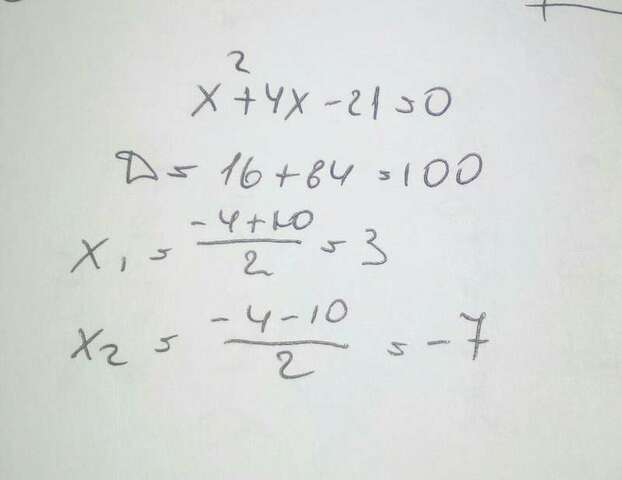 x² + 4x - 21 = 0
D = 16 + 84 = 100
x₁ = (-4 + 10)/2 = 3
x₂ = (-4 - 10)/2 = -7